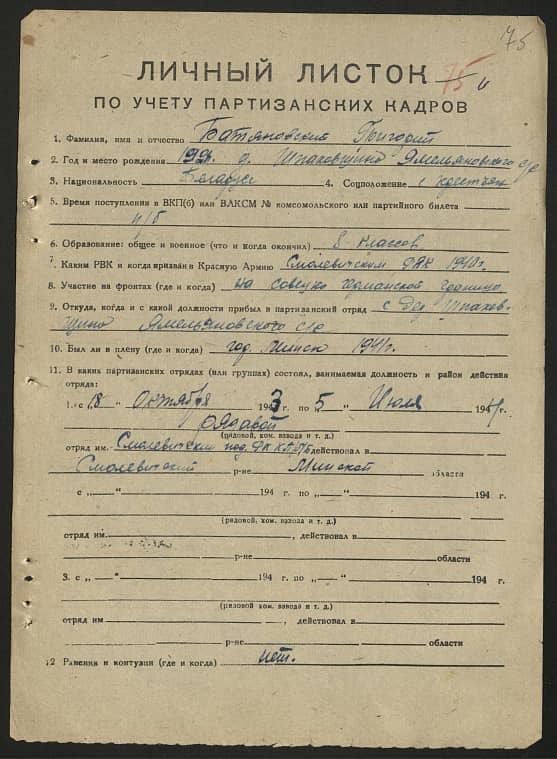 75
ЛИЧНЫЙ ЛИСТОК 75
ПО УЧЕТУ ПАРТИЗАНСКИХ КАДРОВ
1. Фамилия, имя и отчество Батяновский Григорий
2. Год и место рождения д. Шпаковщина Ямельяновского с/с
3. Национальность Беларус 4. Соцположение с крестьян
5. Время поступления в ВКП(б) или ВЛКСМ № комсомольского или партийного билета
н/б
6. Образование: общее и военное (что и когда окончил) 8 классов
7. Каким РВК и когда призван в Красную Армию Смолевичским РВК 1940г.
8. Участие на фронтах (где и когда) На советско германской границе
9. Откуда, когда и с какой должности прибыл в партизанский отряд с дер Шпаков-
щино Ямельяновского с/с
10. Был ли в плену (где и когда) гор. Минск 1941г.
11. В каких партизанских отрядах (или группах) состоял, занимаемая должность и район действия
отряда:
1. с „18 " Октября 1943 г. по „5 " Июля 1944 г.
рядовой
(рядовой, ком. взвода и т. д.)
отряд им. Смолевичским под. РК КП/б/Б действовал в
Смолевичский р-не Минской области
с „ " 194 г. по „ " 194 г.
(рядовой, ком. взвода и т. д.)
отряд им. , действовал в
р-не области
3. с „ " 194 г. по „ " 194 г.
(рядовой ком. взвода и т. д.)
отряд им , действовал в
р-не области
12 Ранения и контузии (где и когда) нет.